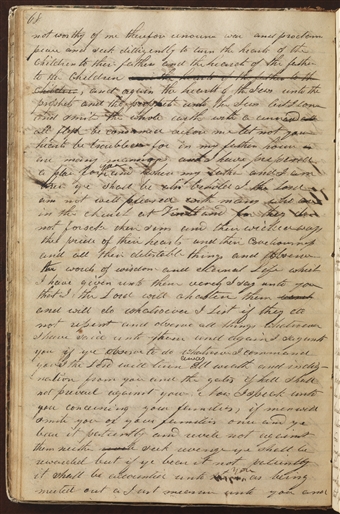 68
not worthy of me therefore renounce war and proclaim
peace and seek diligently to turn the hearts of the
children to their fathers and the hearts of the fathers
to the children the hearts of the fathers to the
children, and again the hearts of the Jews unto the
prophets and the prophets unto the Jews lest I come
and smite the whole earth with a curse and
all flesh be consumed before me let not your
hearts be troubled for in my Father house
are many mansions and I have prepared
a place for you and where my Father and I am
there ye shall be also behold I the Lord
am not well pleased with many who are
in the church at Kirtland for they do
not forsake their sins and their wicked ways
the pride of their hearts and their covetousness
and all their detestable things and observe
the words of wisdom and eternal life which
I have given unto them verily I say unto you
that I the Lord will chasten them
and will do whatsoever I list if they do
not repent and observe all things whatsoever
I have said unto them and again I say unto
you if ye observe to do whatsoever I command
you I the Lord will turn away all wrath and indig-
nation from you and the gates of hell shall
not prevail against you Now I speak unto
you concerning your families, if men will
smite you or your families once and ye
bear it patiently and revile not against
them neither seek revenge ye shall be
rewarded but if ye bear it not patiently
it shall be accounted unto you as being
meeted out a just measure unto you and